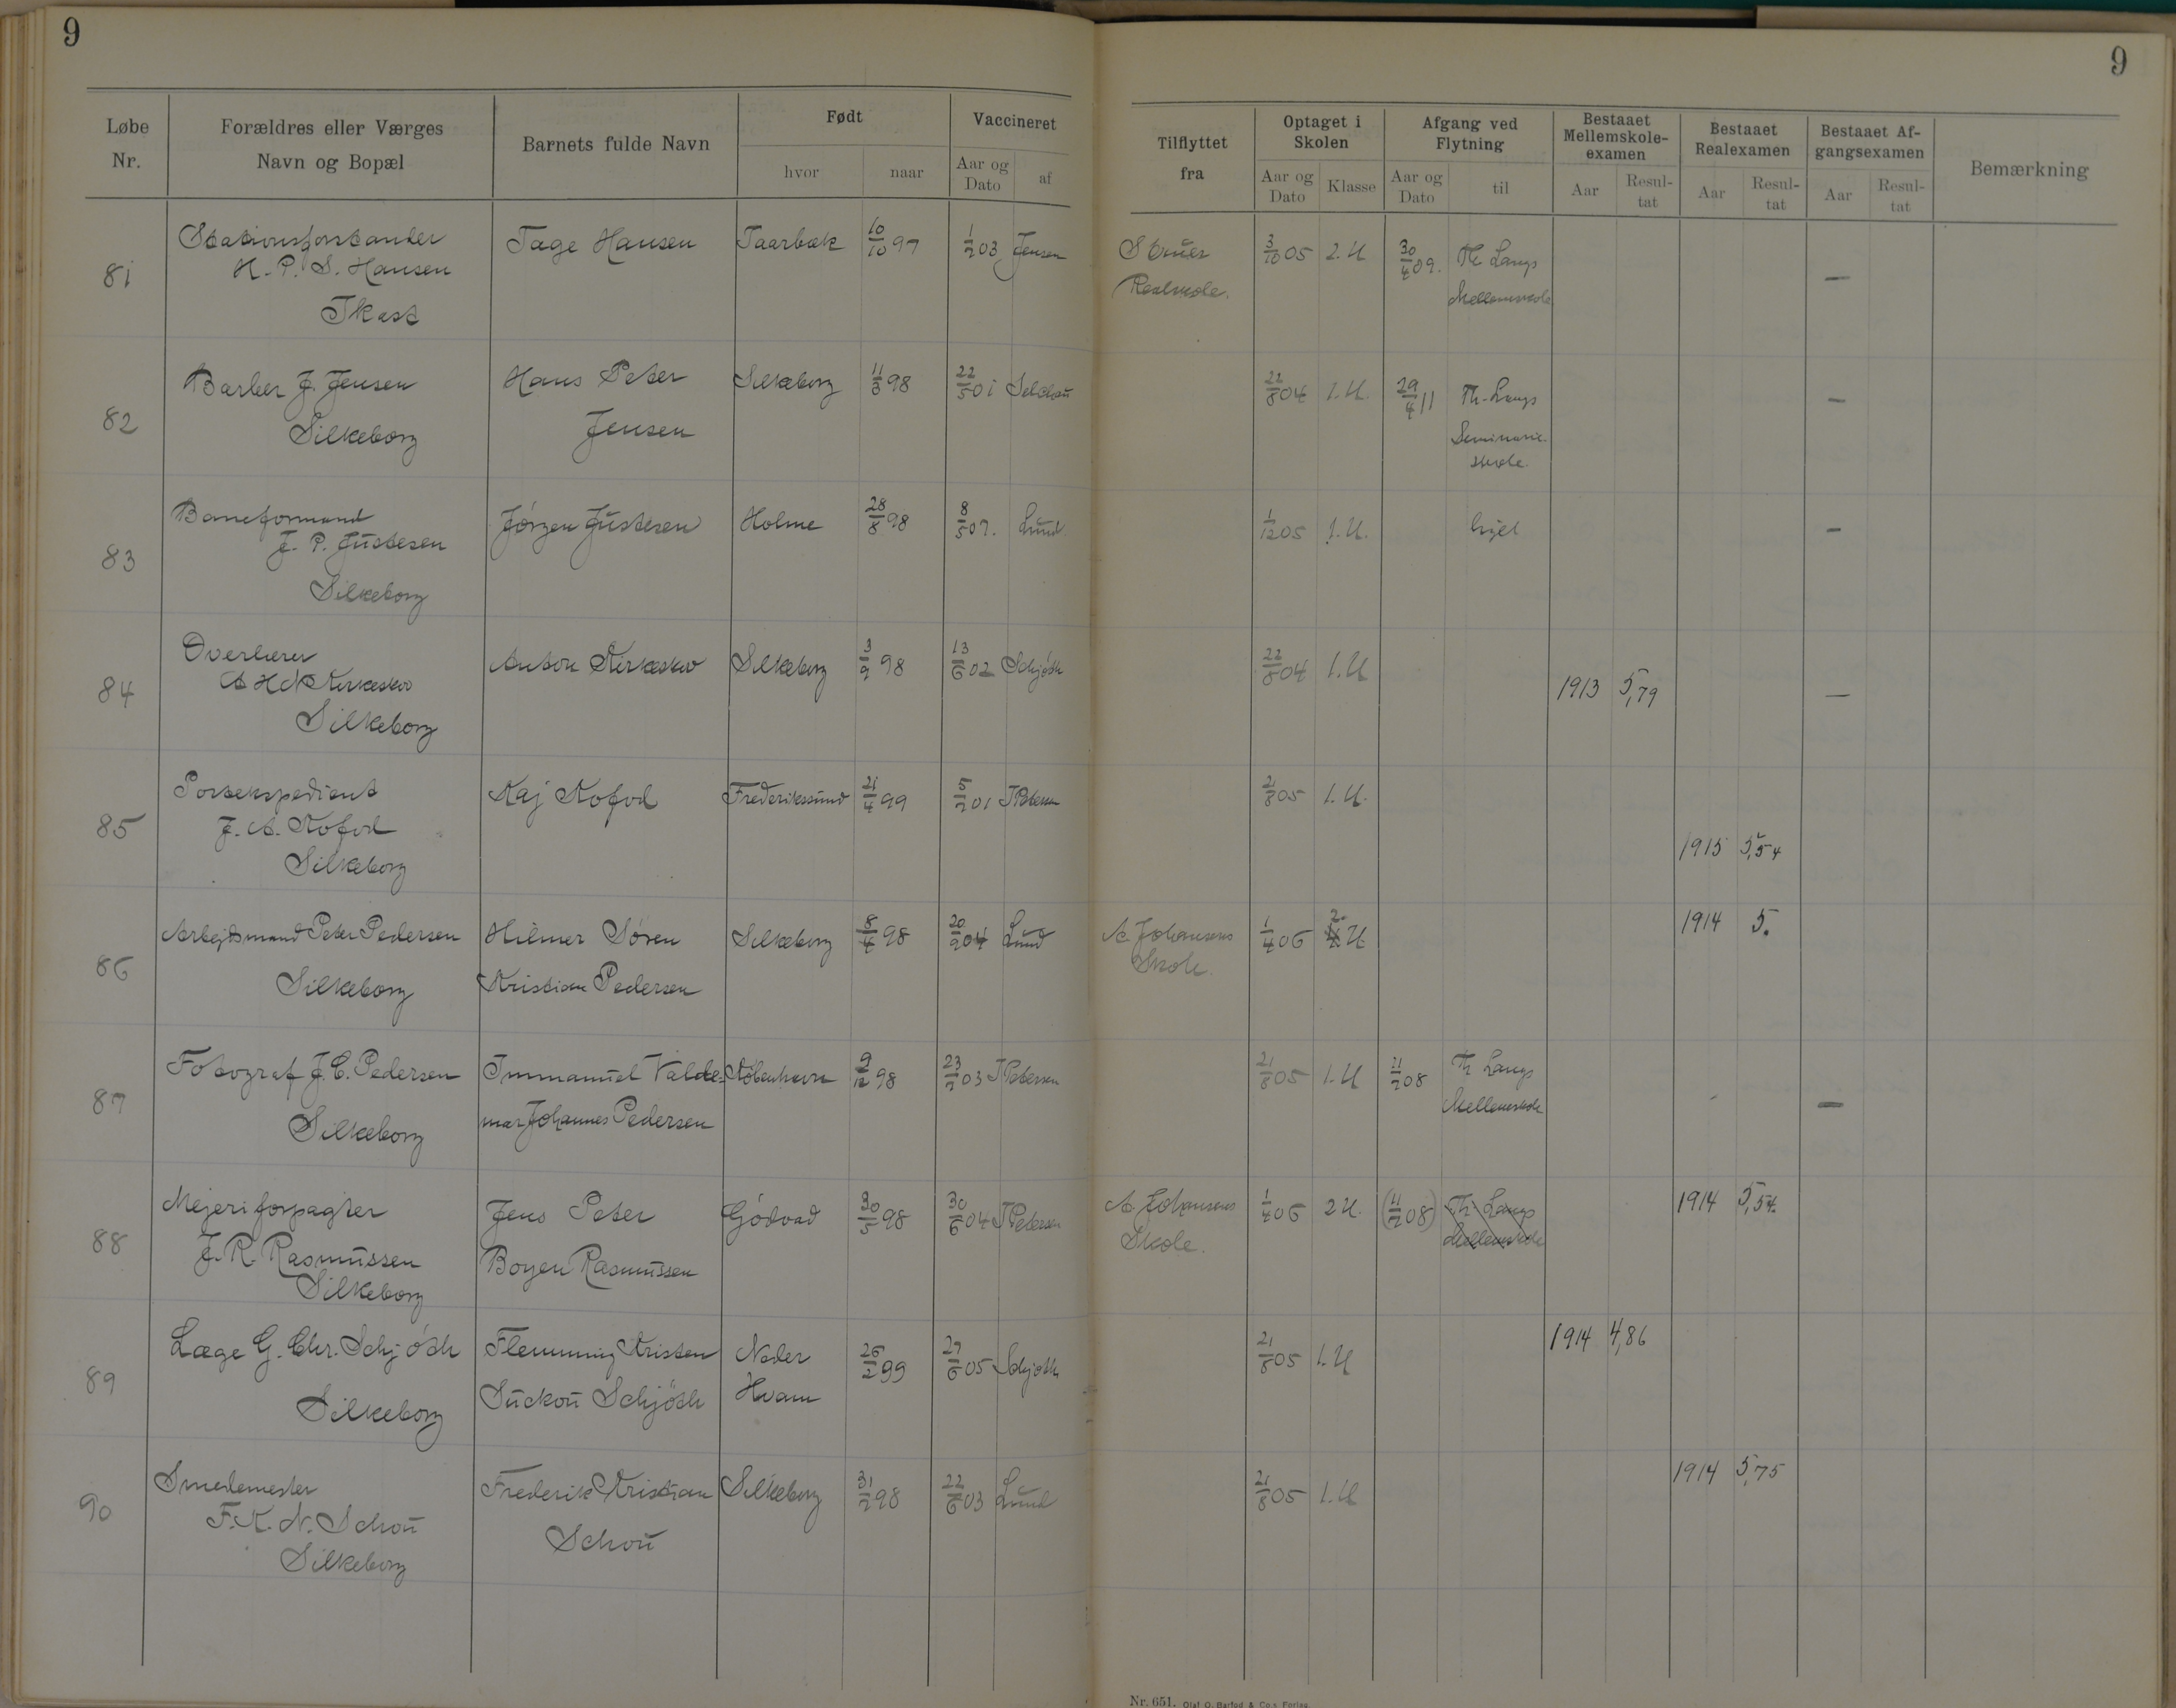 9
9
Løbe Nr.
Forældres eller Værges Navn og Bopæl
Barnets fulde Navn
Født
hvor
naar
Vaccineret
Aar og Dato
af
Tilflyttet fra
Optaget i Skolen
Aar og Dato
Klasse
Afgang ved Flytning
Aar og Dato
til
Bestaaet Mellemskole-examen
Aar
Resul-tat
Bestaaet Realexamen
Aar
Resul-tat
Bestaaet Af-gangsexamen
Aar
Resul-tat
Bemærkning
81
Stationsforstander
H. P. S. Hansen
Ikast
Tage Hansen
Taarbæk
10/10 97
1/2 03
Jensen
Struer
Realskole.
3/10 05
2. U
30/4 09.
Th Langs
Mellemskole
—
82
Barber J. Jensen
Silkeborg
Hans Peter
Jensen
Silkeborg
11/3 98
22/5 01
22/8 04
1. U.
29/4 11
Th. Langs
Seminarie-
skole
—
83
Baneformand
J. P. Justesen
Silkeborg
Jørgen Justesen
Holme
28/8 98
8/5 07.
Lund
1/12 05
1. U.
—
84
Overlærer
Kirkeskov
Silkeborg
Anton Kirkeskov
Silkeborg
3/9 98
13/6 02
Schjöth
22/8 04
1. U
1913
5,79
—
85
Postekspedient
J. A. Kofod
Silkeborg
Kaj Kofod
Frederikssund
21/4 99
5/2 01
21/8 05
1. U.
1915
5,54
86
Arbejdsmand Peter Pedersen
Silkeborg
Hilmer Sören
Kristian Pedersen
Silkeborg
8/4 98
20/9 04
Lund
A Johansens
Skole.
1/4 06
2. U
1914
5.
87
Fotograf J. C. Pedersen
Silkeborg
Immanuel Valde-
mar Johannes Pedersen
København
9/12 98
23/2 03
J Petersen
21/8 05
1. U
11/2 08
Th Langs
Mellemskole
—
88
Mejeriforpagter
J. R. Rasmussen
Silkeborg
Jens Peter
Boyen Rasmussen
Gödvad
30/5 98
30/6 04
J Petersen
A Johansens
Skole.
1/4 06
2 U.
(11/2 08)
Th. Langs
Mellemskole
1914
5,54.
89
Læge G. Chr. Schjöth
Silkeborg
Flemming Kristen
Suckou Schjöth
Neder
Hvam
26/2 99
27/6 05
Schjöth
21/8 05
1. U
1914
4,86
90
Smedemester
F. K. N. Schou
Silkeborg
Frederik Kristian
Schou
Silkeborg
31/2 98
22/6 03
Lund
21/8 05
1. U
1914
5,75
Nr. 651. Olaf O. Barfod & Co.s Forlag.